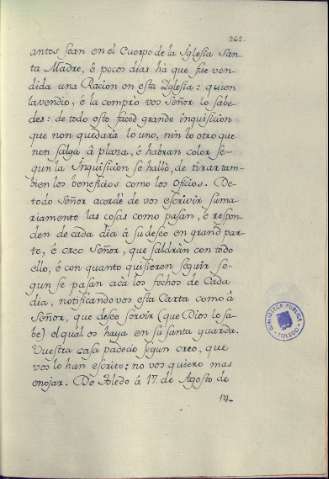 202.
antos sean en el Cuerpo de la Iglesia San-
ta Madre, è pocos dias ha que fue ven-
dida una Racion en esta Iglesia: quien
la vendio, è la compro vos Señor lo sabe-
des: de todo esto faced grande inquisicion
que non quedara lo uno, nin lo otro que
non salga à plaza, è habran color se-
gun la Inquisicion se hallò, de tirar tam-
bien los beneficios como los oficios. De
todo Señor acordè de vos escrivir suma-
riamente las cosas como pasan, è respon-
den de cada dia à su deseo en grand par-
te, è creo Señor, que saldràn con todo
ello, è con quanto quisieren seguir se-
gun se pasan acà los fechos de Cada
dia, notificando vos esta Carta como à
Señor, que deseo servir (que Dios lo sa-
be) el qual os haya en su santa guarda.
Vuestra casa padece segun creo, que
vos lo han escrito; no vos quiero mas
enojar. De Toledo à 17 de Agosto de
BIBLIOTECA PUBLICA
TOLEDO